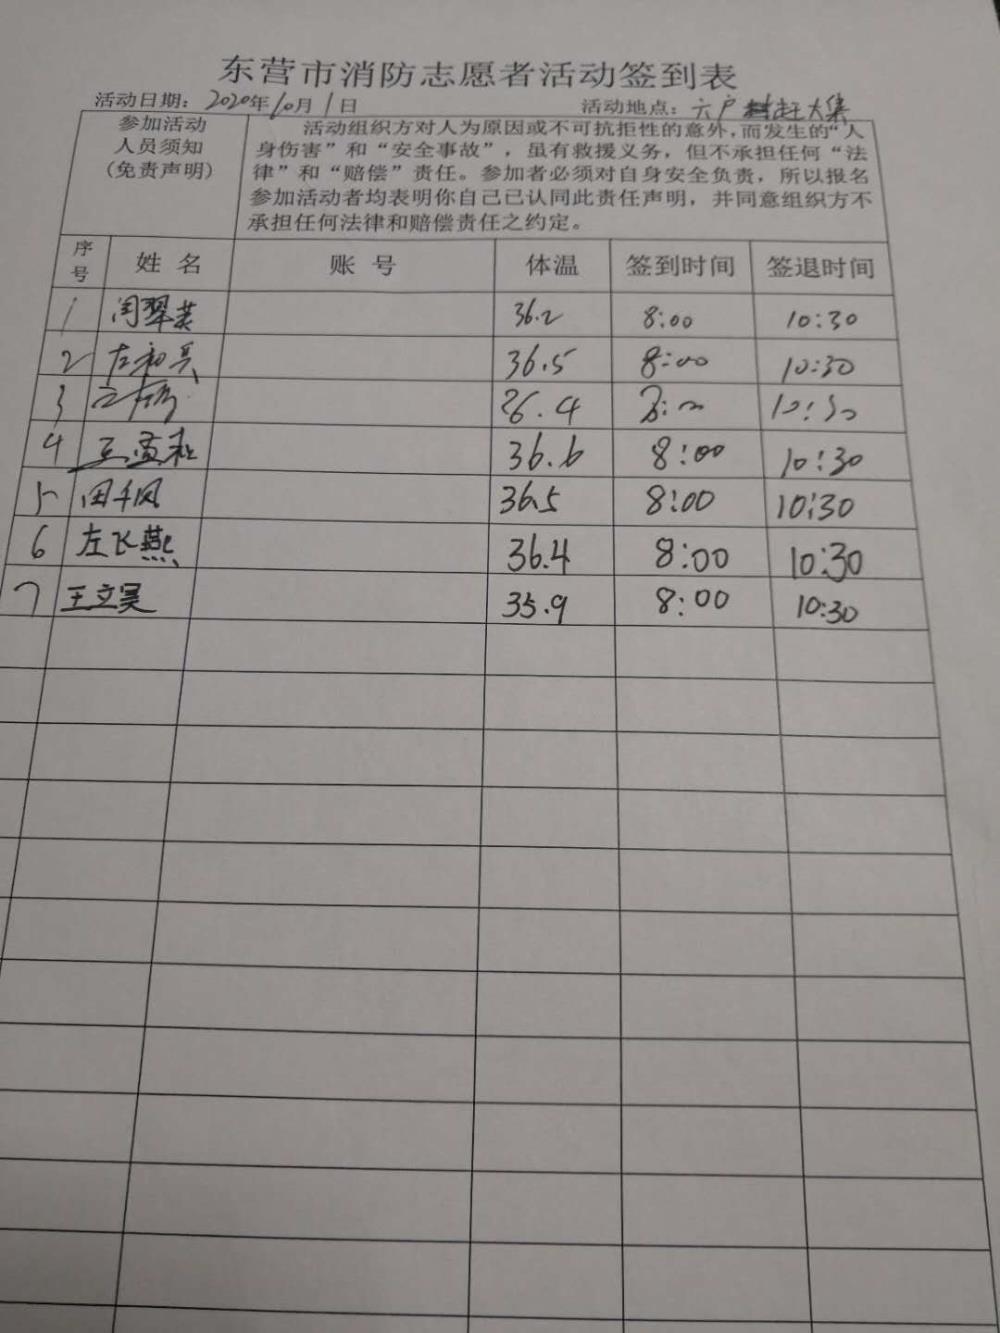 东营市消防志愿者活动签到表
活动日期：2020年10月1日 活动地点：六户赶大集
参加活动
人员须知
(免责声明)
活动组织方对人为原因或不可抗拒性的意外,而发生的“人
身伤害”和“安全事故”，虽有救援义务，但不承担任何“法
律”和“赔偿”责任。参加者必须对自身安全负责，所以报名
参加活动者均表明你自己已认同此责任声明，并同意组织方不
承担任何法律和赔偿责任之约定。
序号 姓名 账号 体温 签到时间 签退时间
1 闫翠英 36.2 8:00 10:30
2 36.5 8:00 10:30
3 8:00 10:30
4 王孟和 36.6 8:00 10:30
5 田千凤 36.5 8:00 10:30
6 左飞燕 36.4 8:00 10:30
7 王立昊 35.9 8:00 10:30